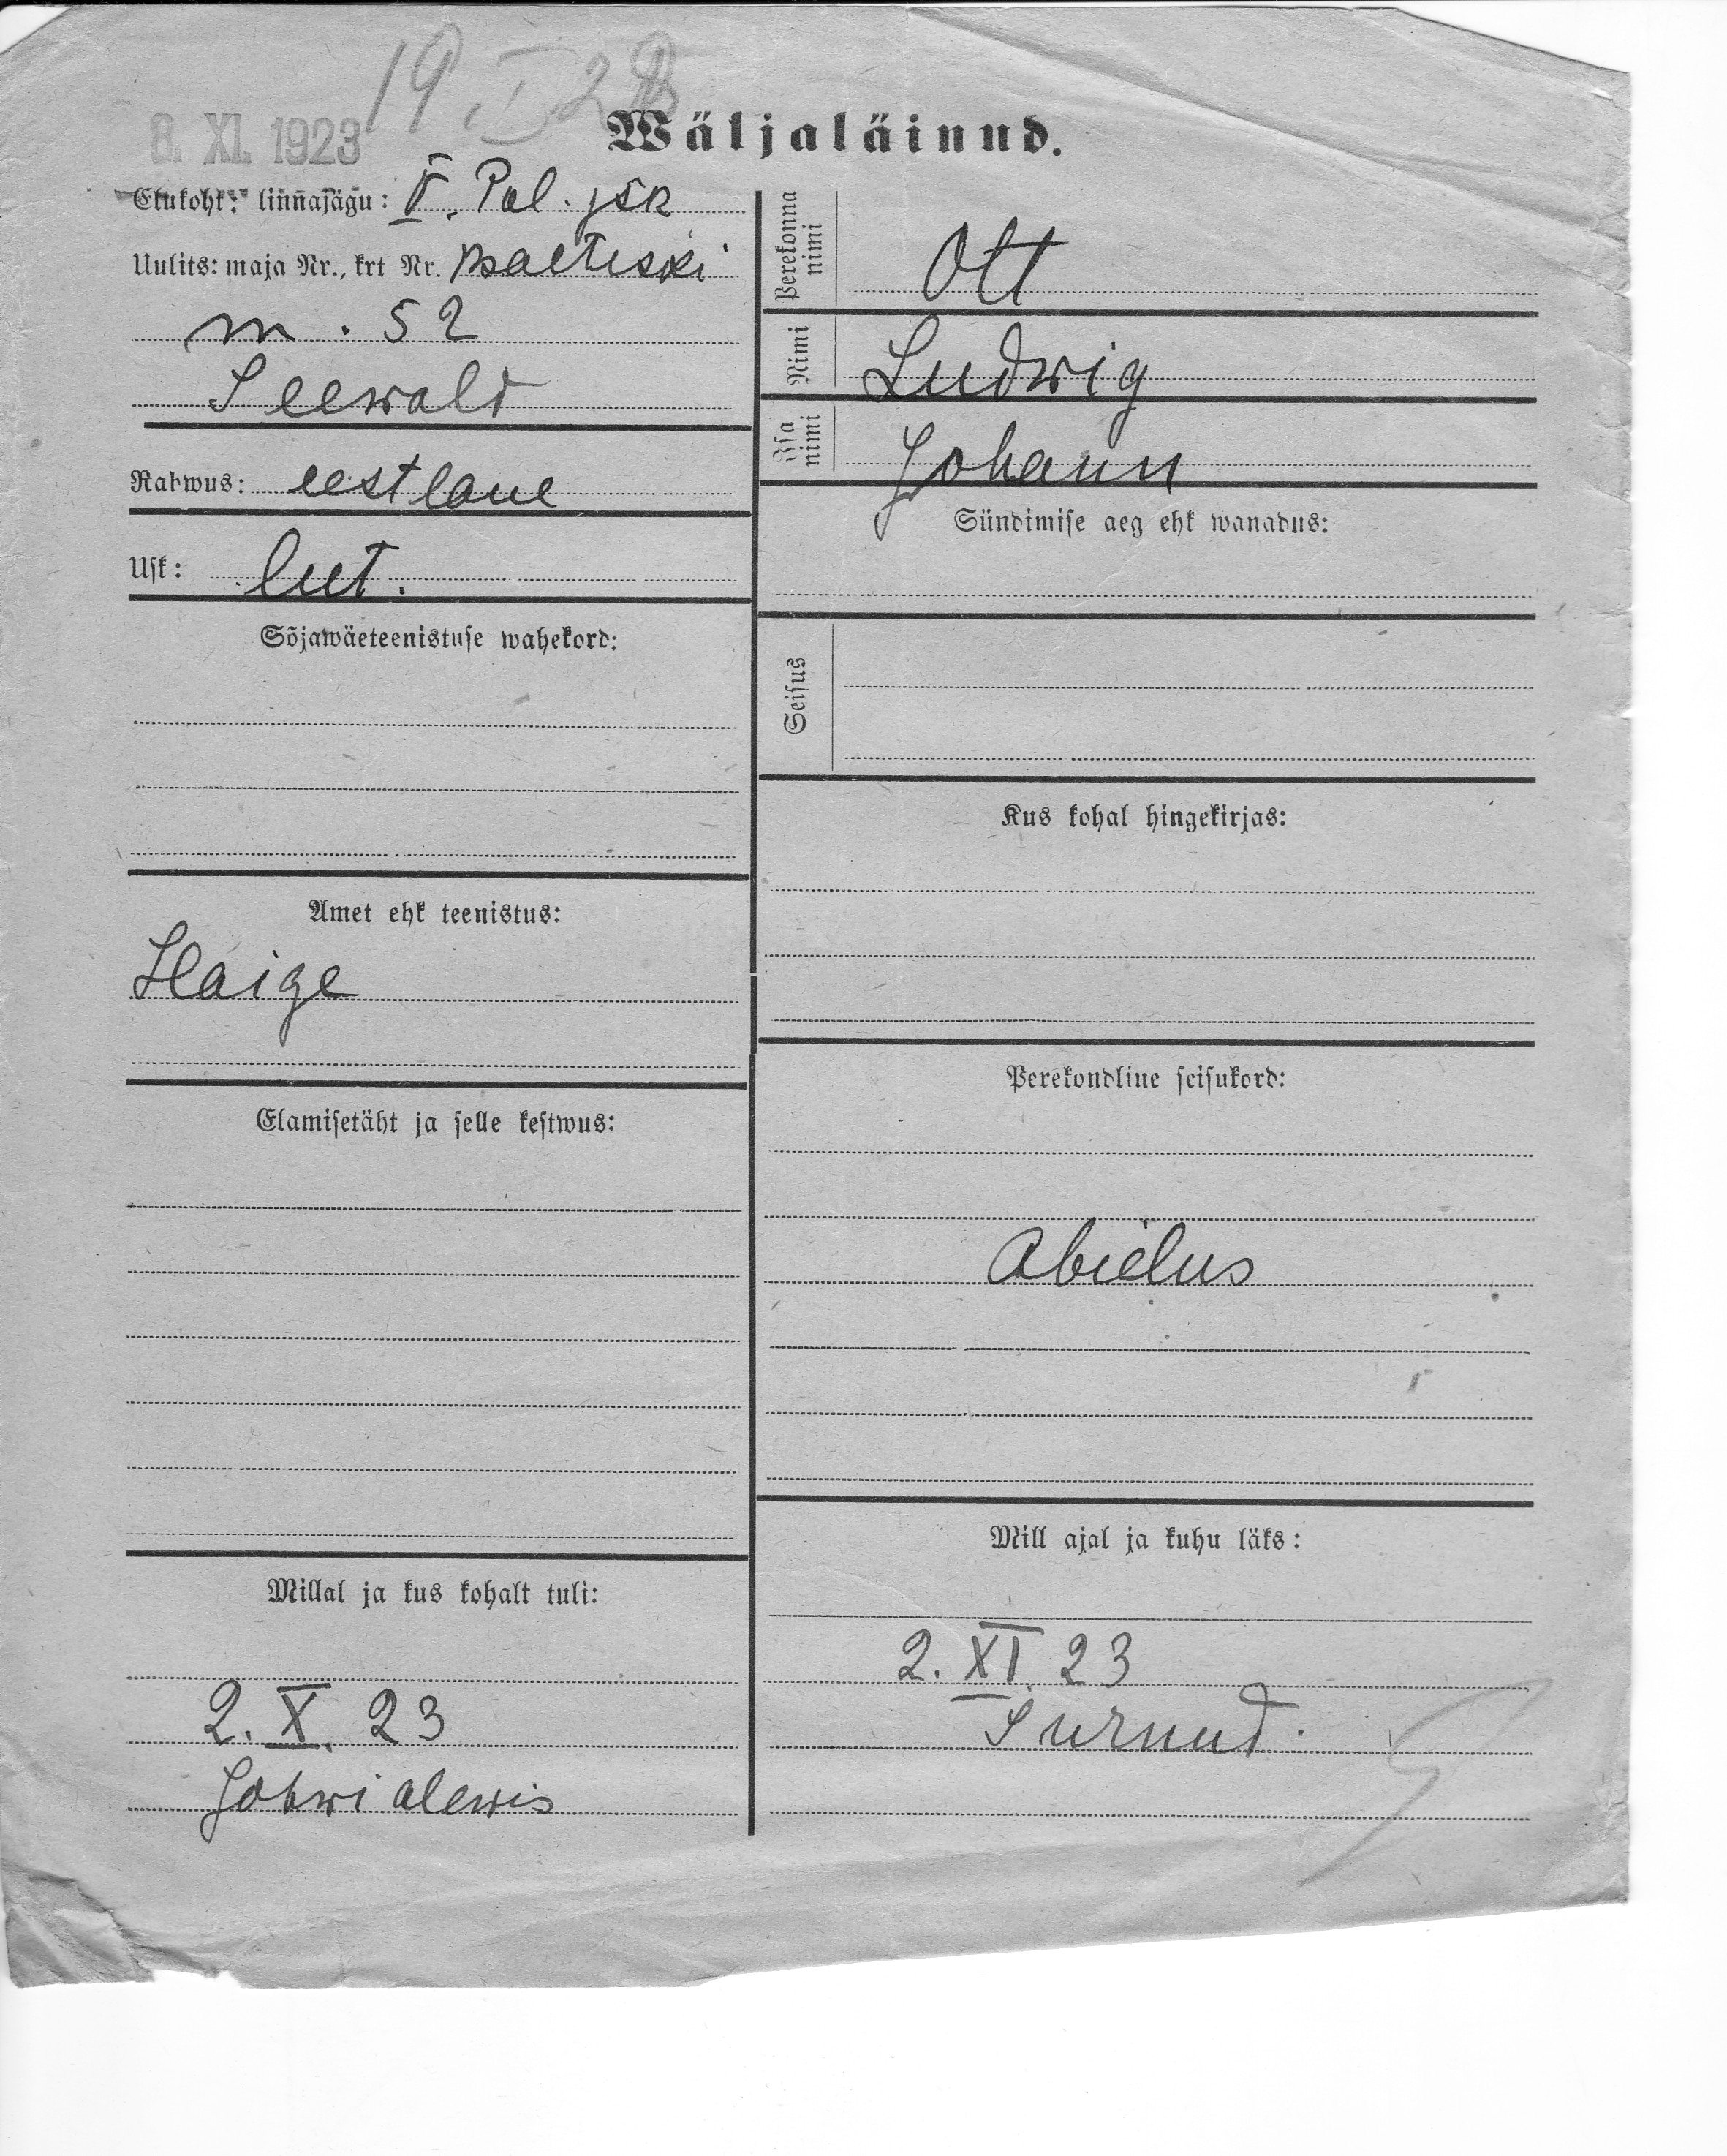 19. I 28
8. XI. 1923
Wäljaläinud.
Elukoht: linnajagu: V. Pol. jsk
Uulits: maja Nr., krt Nr. Baltiski
m. 52
Seewald
Rahwus: eestlane
Usk: lut.
Sõjawäeteenistuse wahekord:
Amet ehk teenistus:
Haige
Elamisetäht ja selle kestwus:
Millal ja kus kohalt tuli:
2. X. 23
Johwi alewis
Perekonna nimi Ott
Nimi Ludwig
Isa nimi Johann
Sündimise aeg ehk wanadus:
Seisus
Kus kohal hingekirjas:
Perekondline seisukord:
Abielus
Mill ajal ja kuhu läks:
2. XI. 23
Surnud.